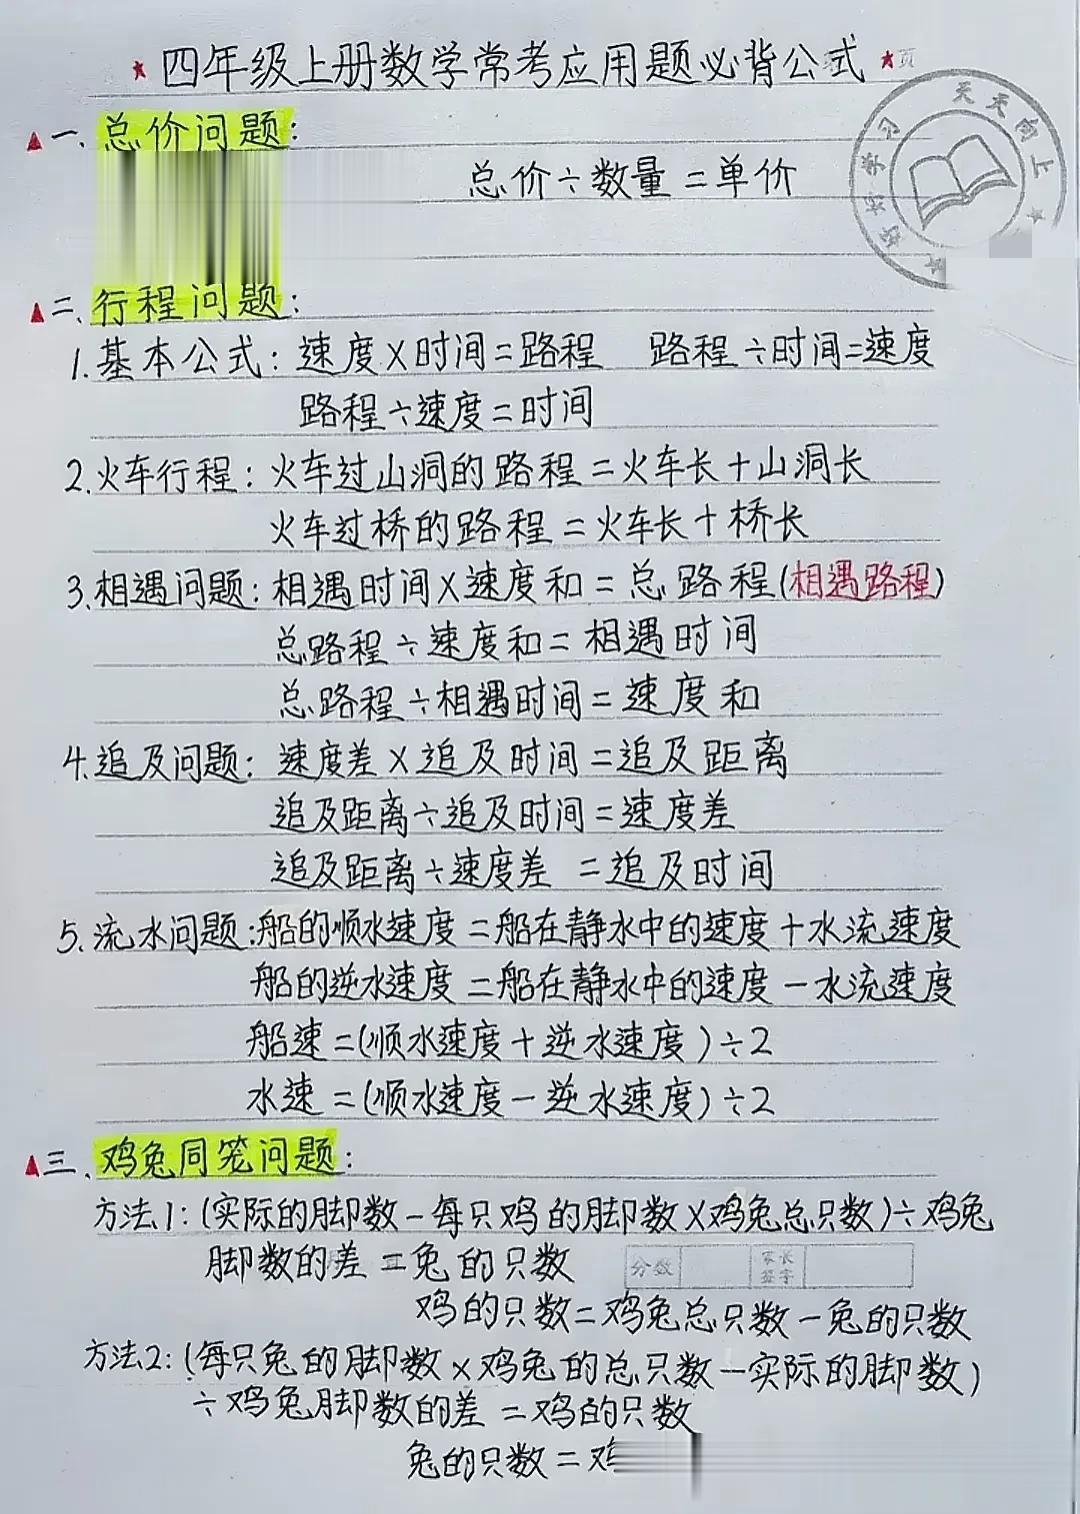 ★四年级上册数学常考应用题必背公式★页
好好学习 天天向上
▲一、总价问题:
总价÷数量=单价
▲二、行程问题:
1.基本公式:速度×时间=路程 路程÷时间=速度
路程÷速度=时间
2.火车行程:火车过山洞的路程=火车长+山洞长
火车过桥的路程=火车长+桥长
3.相遇问题:相遇时间×速度和=总路程(相遇路程)
总路程÷速度和=相遇时间
总路程÷相遇时间=速度和
4.追及问题:速度差×追及时间=追及距离
追及距离÷追及时间=速度差
追及距离÷速度差=追及时间
5.流水问题:船的顺水速度=船在静水中的速度+水流速度
船的逆水速度=船在静水中的速度-水流速度
船速=(顺水速度+逆水速度)÷2
水速=(顺水速度-逆水速度)÷2
▲三、鸡兔同笼问题:
方法1:(实际的脚数-每只鸡的脚数×鸡兔总只数)÷鸡兔
脚数的差=兔的只数
分数 家长签字
鸡的只数=鸡兔总只数-兔的只数
方法2:(每只兔的脚数×鸡兔的总只数-实际的脚数)
÷鸡兔脚数的差=鸡的只数
兔的只数=